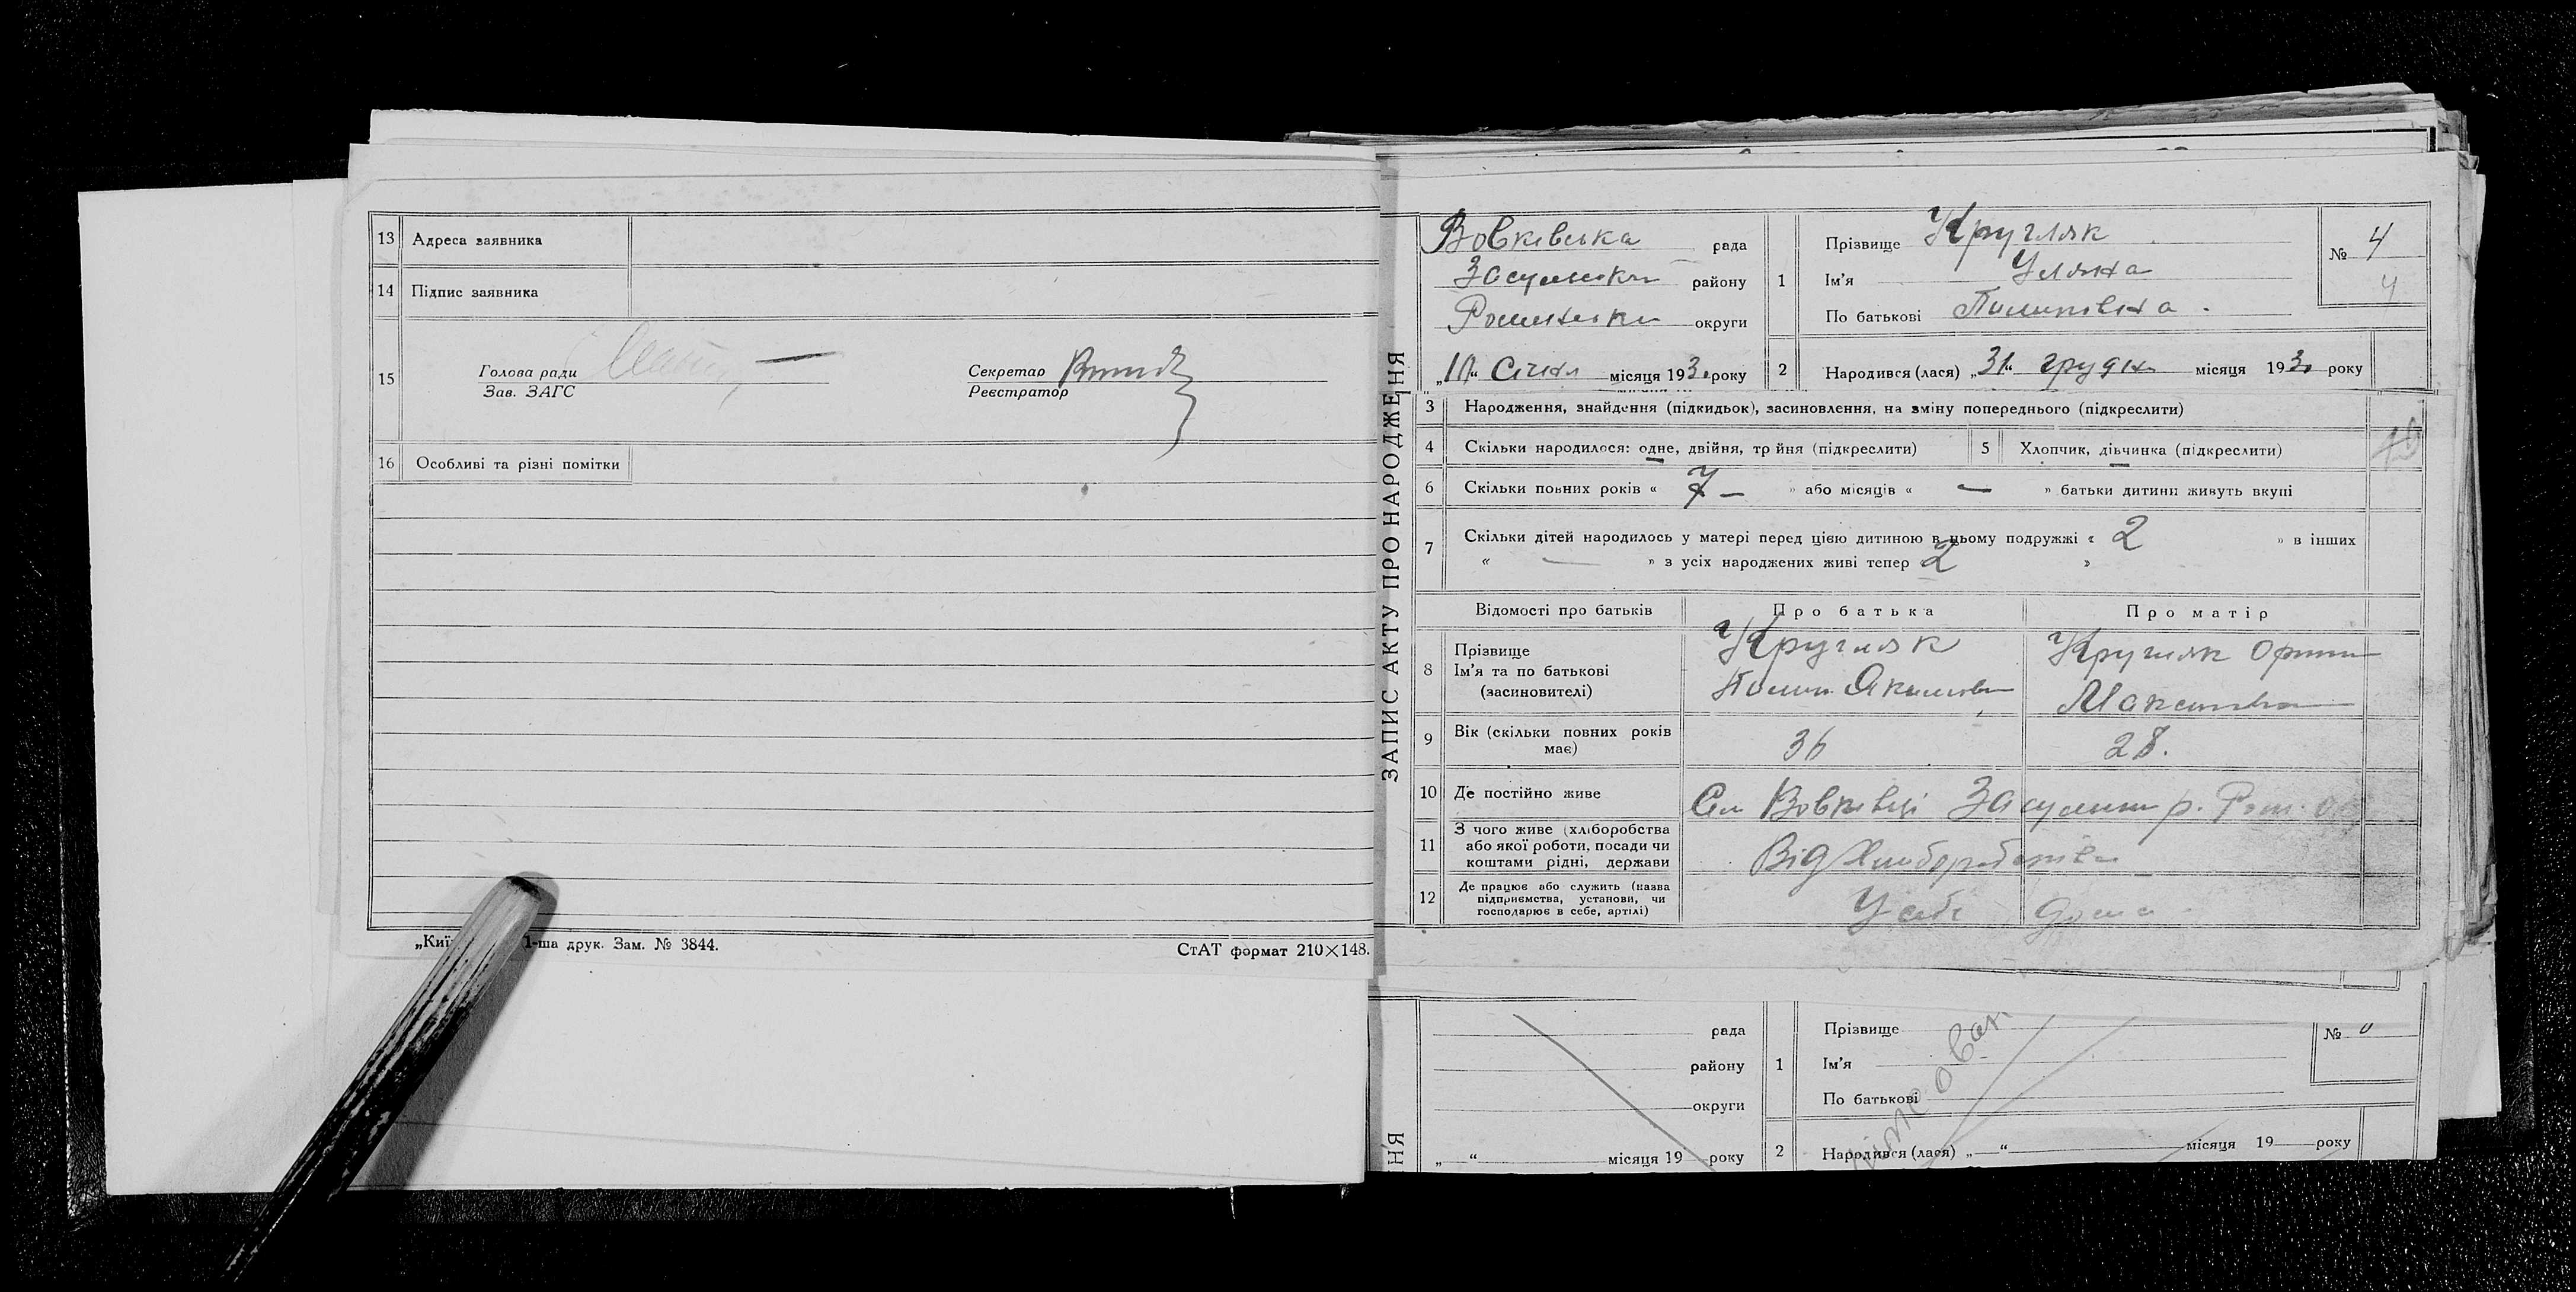 13 Адреса заявника
14 Підпис заявника
15 Голова ради
Зав. ЗАГС
Секретар
Реєстратор
16 Особливі та різні помітки
„Киї 1-ша друк. Зам. № 3844.
СтАТ формат 210×148.
ЗАПИС АКТУ ПРО НАРОДЖЕННЯ
Вовківська рада
Засульськ району
Роменськ округи
„10“ Січня місяця 1930 року
1 Прізвище Кругляк
Ім'я Уляна
По батькові Пилипівна
№ 4
4
2 Народився (лася) „31“ грудн місяця 193 року
3 Народження, знайдення (підкидьок), засиновлення, на зміну попереднього (підкреслити)
4 Скільки народилося: одне, двійня, трійня (підкреслити)
5 Хлопчик, дівчинка (підкреслити)
6 Скільки повних років « 7 – » або місяців « — » батьки дитини живуть вкупі
7 Скільки дітей народилось у матері перед цією дитиною в цьому подружжі « 2 » в інших
« — » з усіх народжених живі тепер 2 »
Відомості про батьків Про батька Про матір
8 Прізвище
Ім'я та по батькові
(засиновителі)
Кругляк
Пилип Якимов
Кругляк Орини
Максимівна
9 Вік (скільки повних років
має)
36 28.
10 Де постійно живе Сел Вовківці Засульськ р. Ром. окр
11 З чого живе (хліборобства
або якої роботи, посади чи
коштами рідні, держави
Від Хліборобства
12 Де працює або служить (назва
підприємства, установи, чи
господарює в себе, артілі)
У себе дома
рада
району
округи
„ “ місяця 19 року
1 Прізвище
Ім'я
По батькові
№
2 Народився (лася) „ “ місяця 19 року
НЯ